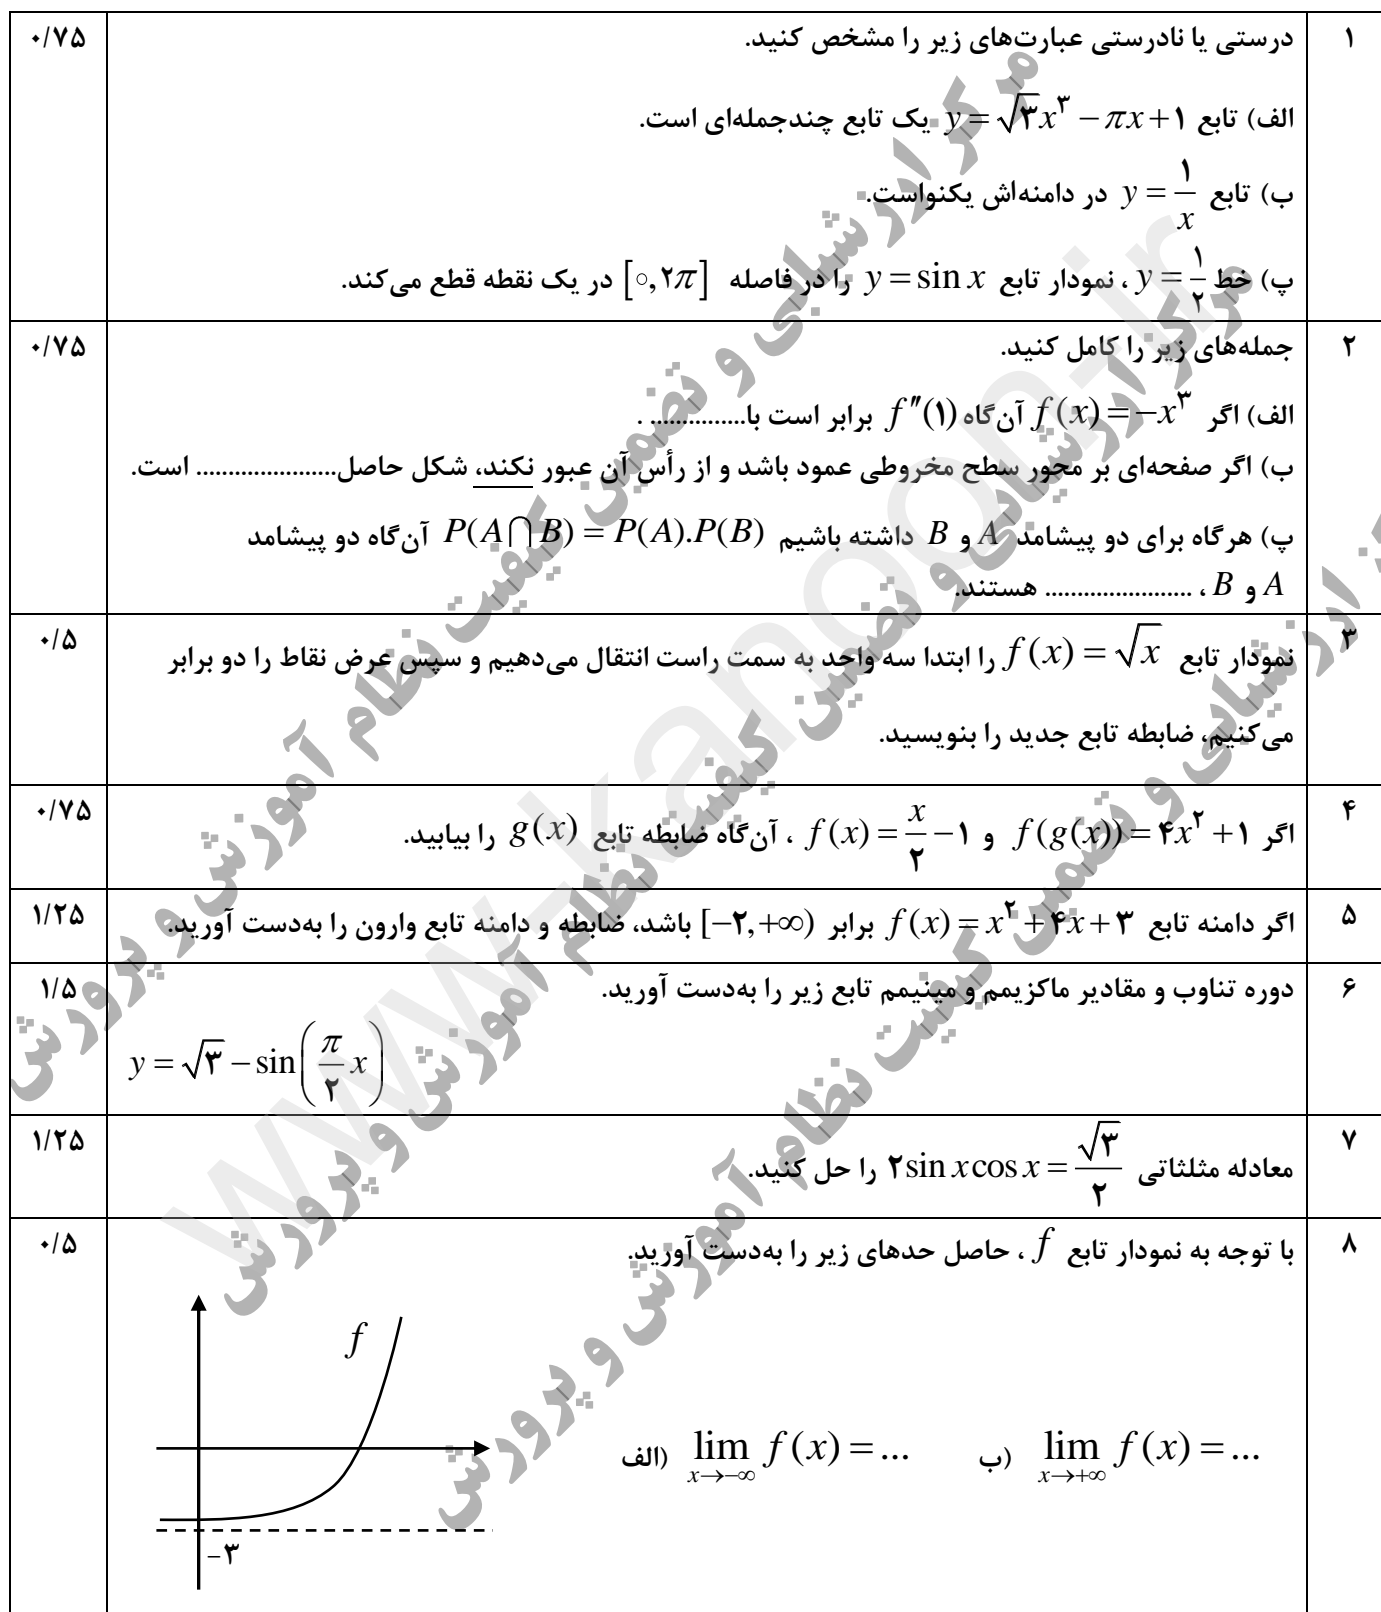 ۱ درستی یا نادرستی عبارت‌های زیر را مشخص کنید. ۰/۷۵
الف) تابع y = √۳x^۳ − πx + ۱ یک تابع چندجمله‌ای است.
ب) تابع y = ۱/x در دامنه‌اش یکنواست.
پ) خط y = ۱/۲ ، نمودار تابع y = sin x را در فاصله [۰, ۲π] در یک نقطه قطع می‌کند.
۲ جمله‌های زیر را کامل کنید. ۰/۷۵
الف) اگر f(x) = −x^۳ آن‌گاه f″(۱) برابر است با............... .
ب) اگر صفحه‌ای بر محور سطح مخروطی عمود باشد و از رأس آن عبور نکند، شکل حاصل...................... است.
پ) هرگاه برای دو پیشامد A و B داشته باشیم P(A∩B) = P(A).P(B) آن‌گاه دو پیشامد
A و B ، ....................... هستند.
۳ نمودار تابع f(x) = √x را ابتدا سه واحد به سمت راست انتقال می‌دهیم و سپس عرض نقاط را دو برابر ۰/۵
می‌کنیم، ضابطه تابع جدید را بنویسید.
۴ اگر f(g(x)) = ۴x^۲ + ۱ و f(x) = x/۲ − ۱ ، آن‌گاه ضابطه تابع g(x) را بیابید. ۰/۷۵
۵ اگر دامنه تابع f(x) = x^۲ + ۴x + ۳ برابر [−۲, +∞) باشد، ضابطه و دامنه تابع وارون را به‌دست آورید. ۱/۲۵
۶ دوره تناوب و مقادیر ماکزیمم و مینیمم تابع زیر را به‌دست آورید. ۱/۵
y = √۳ − sin(π/۲ x)
۷ معادله مثلثاتی ۲sin x cos x = √۳/۲ را حل کنید. ۱/۲۵
۸ با توجه به نمودار تابع f ، حاصل حدهای زیر را به‌دست آورید. ۰/۵
f
الف) lim x→−∞ f(x) = ... ب) lim x→+∞ f(x) = ...
−۳
مرکز ارزشیابی و تضمین کیفیت نظام آموزش و پرورش
مرکز ارزشیابی و تضمین کیفیت نظام آموزش و پرورش
مرکز ارزشیابی و تضمین کیفیت نظام آموزش و پرورش
www.kanoon.ir